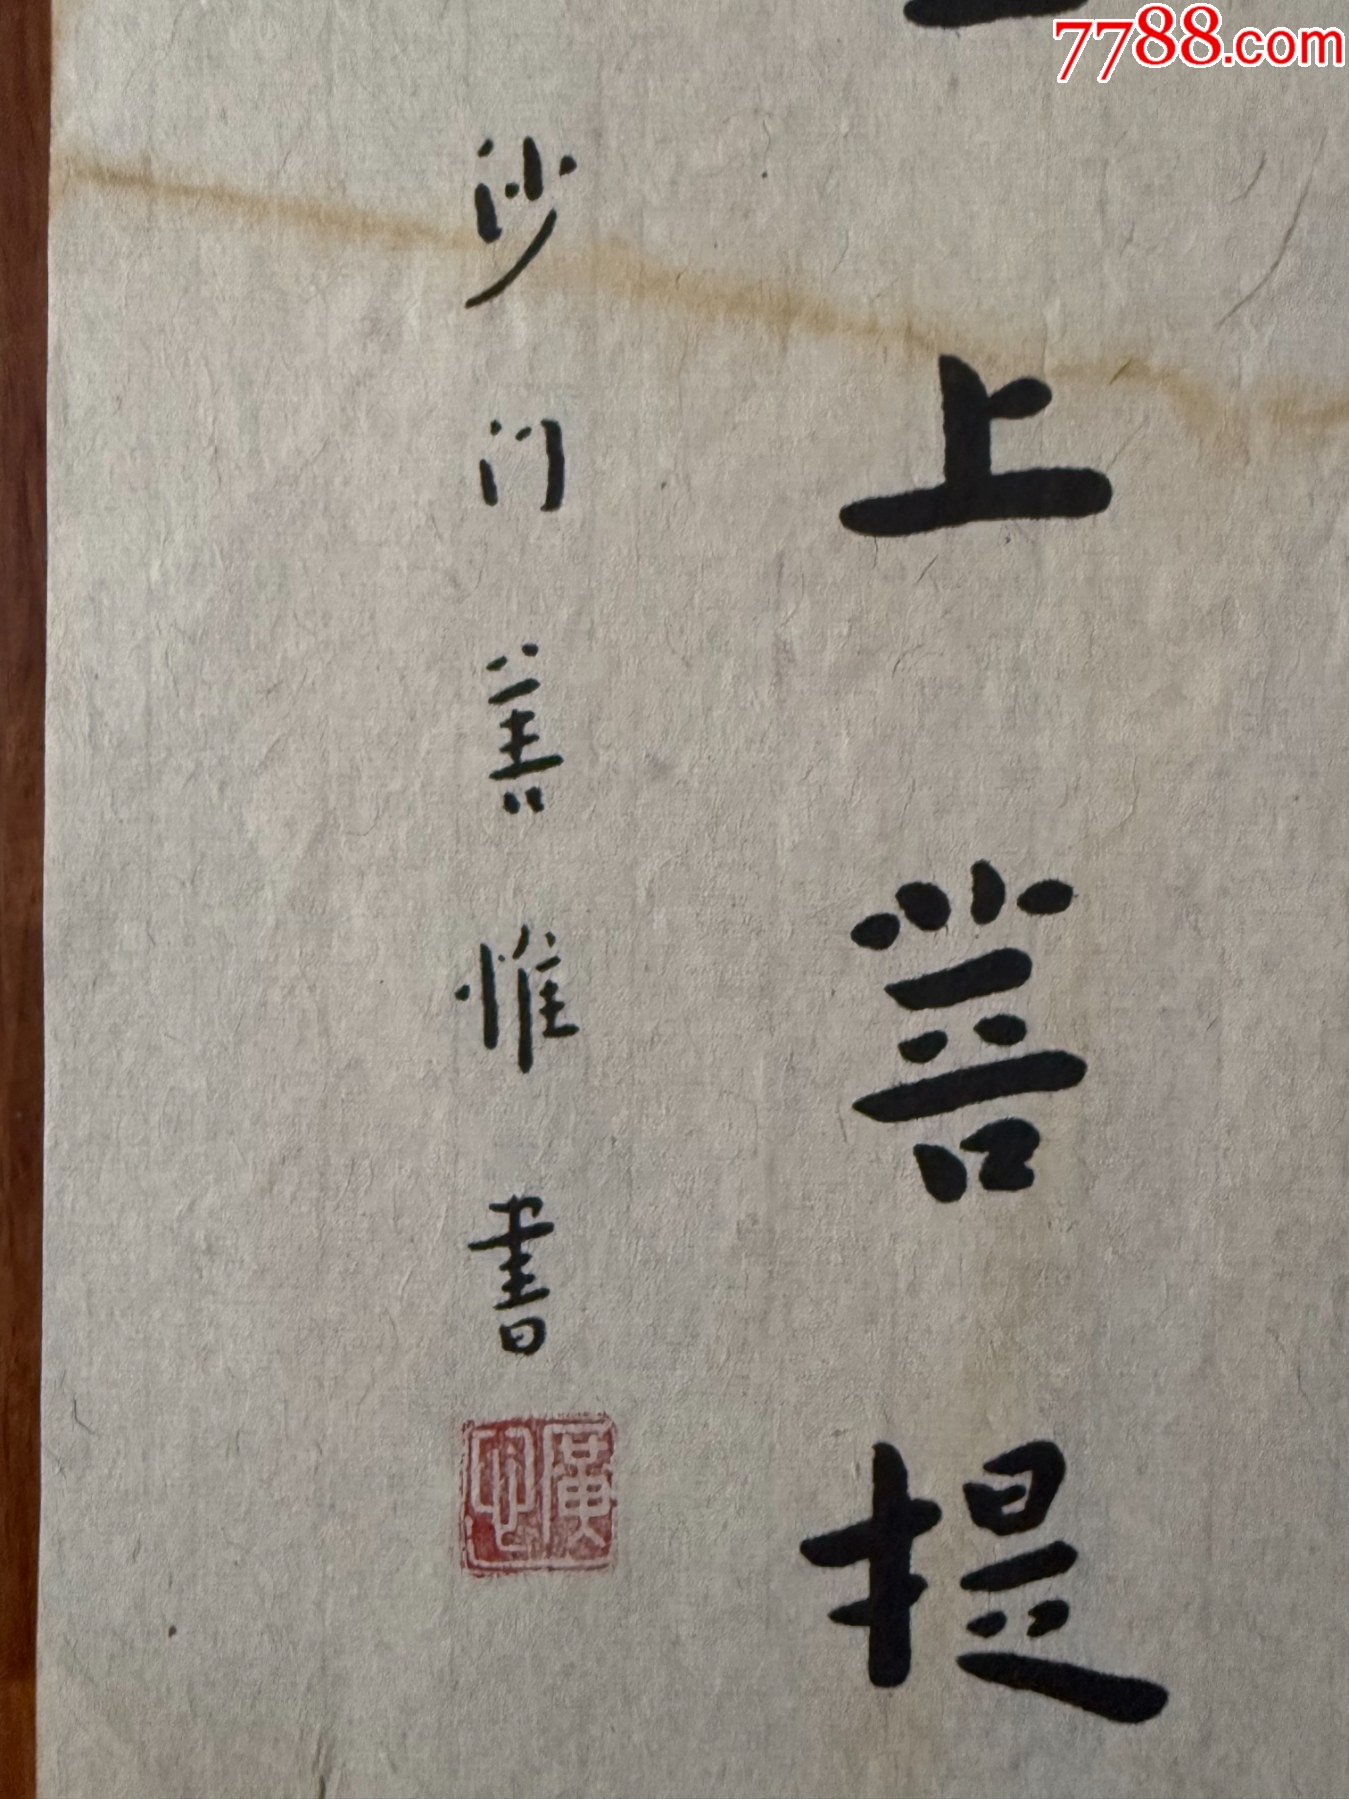 7788.com
上菩提
沙门善惟書